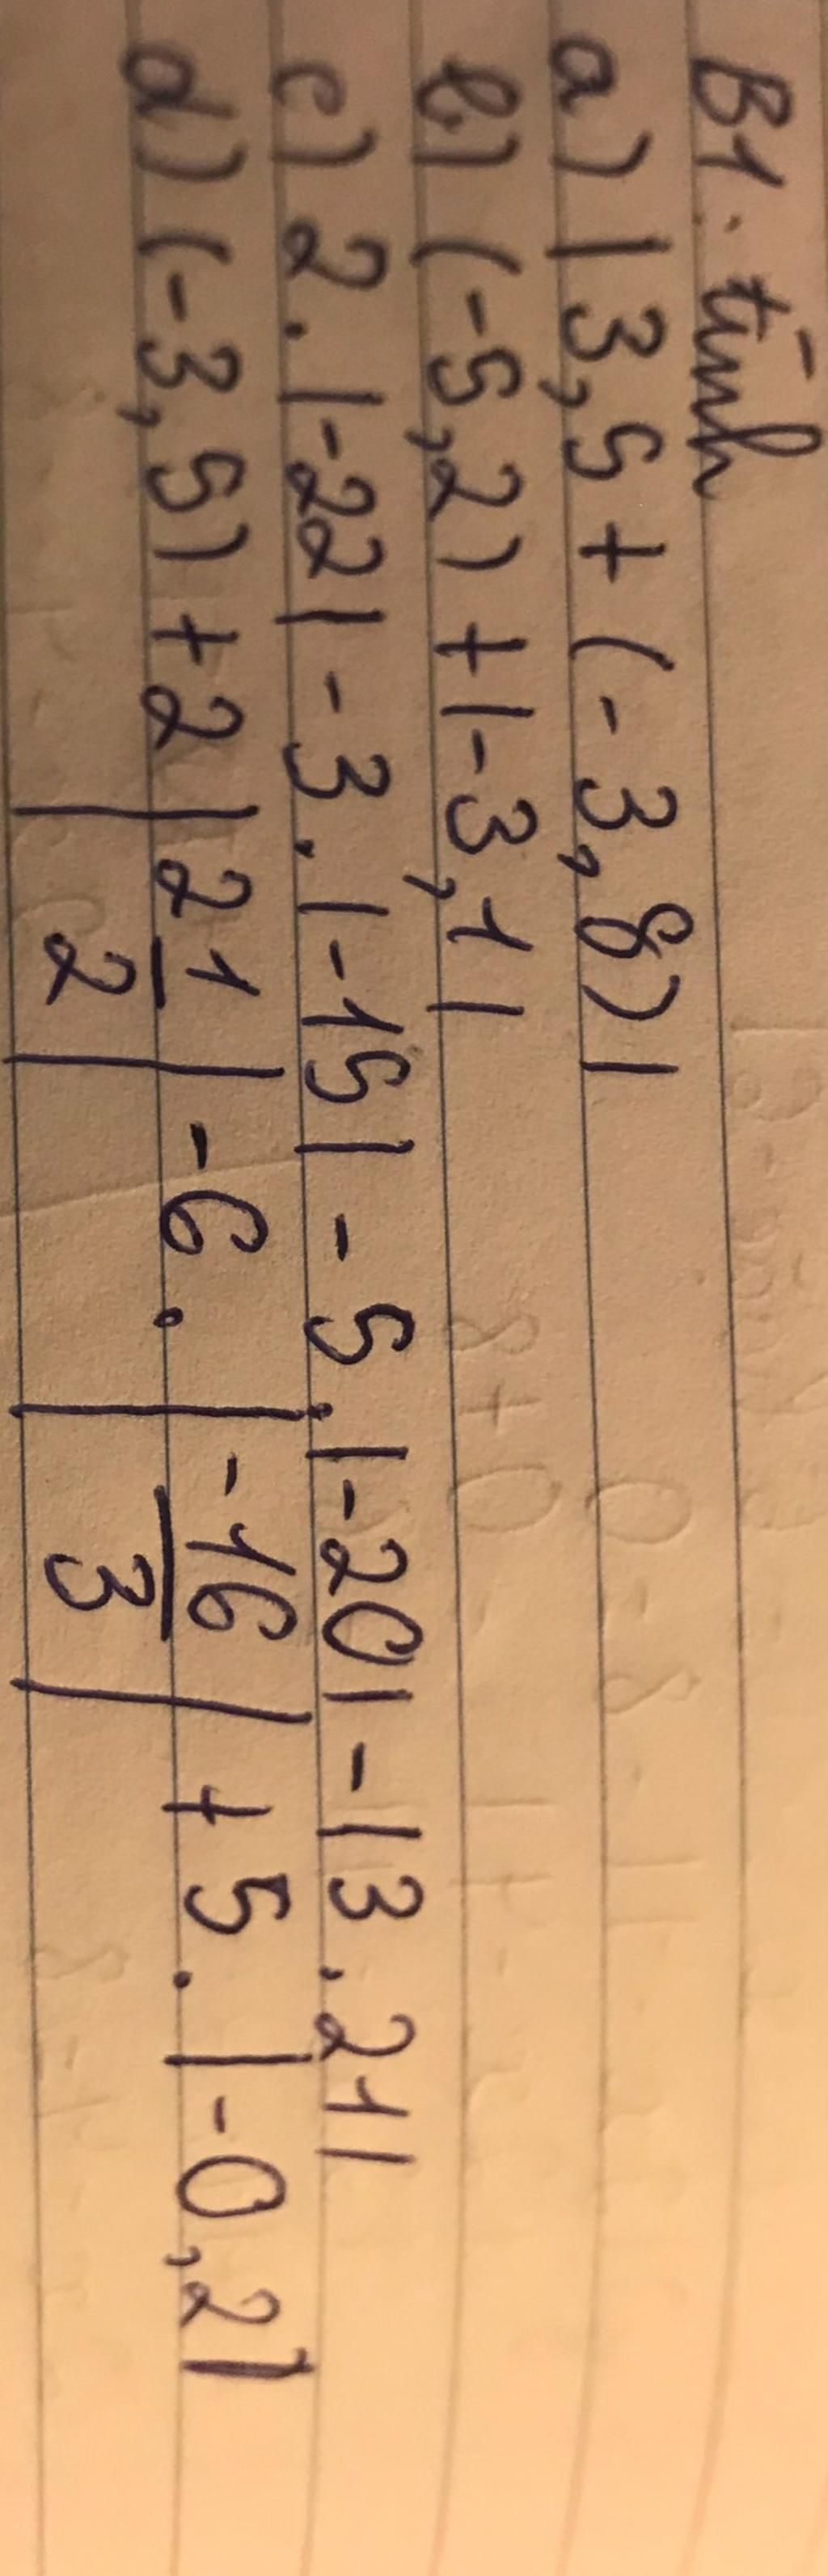 B1. tính
a) |3,5 + (-3,8)|
b) (-5,2) + |-3,1|
c) 2.|-22| - 3.|-15| - 5.|-20| - |3.21|
d) (-3,5) + 2|2 1/2| - 6.|-16/3| + 5.|-0,2|